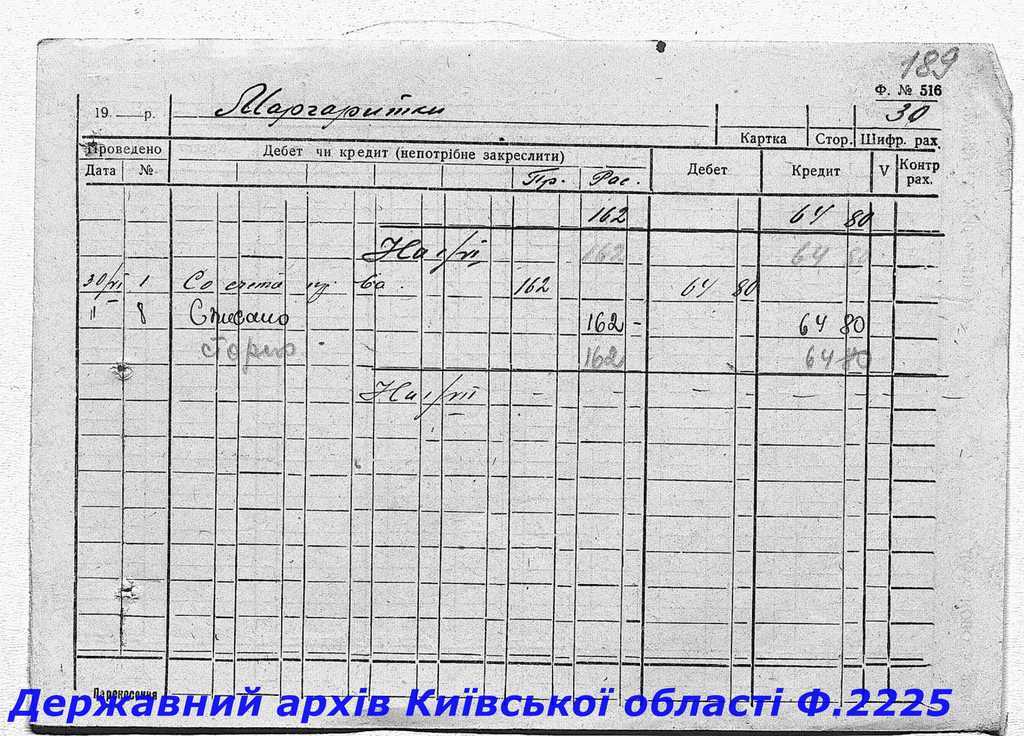 189
Ф. № 516
19 р. Маргаритки 30
Картка Стор. Шифр. рах.
Проведено Дебет чи кредит (непотрібне закреслити) Дебет Кредит V Контр рах.
Дата № Пр. Рас.
162 64 80
На 1/VI 162 64 80
30/VI 1 Со счета 162 64 80
" 8 Списано 162 - 64 80
сторно 162 64 80
На 1/VII - - - - -
Перенесення
Державний архів Київської області Ф.2225